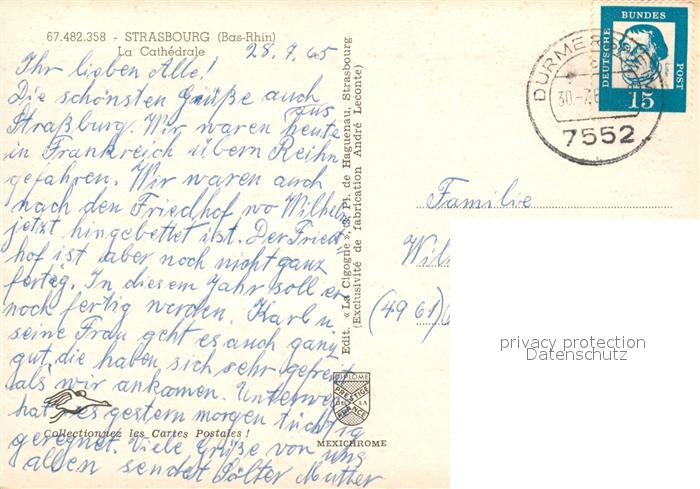 67.482.358 - STRASBOURG (Bas-Rhin)
La Cathédrale
28.7.65
Ihr lieben Alle!
Die schönsten Grüße auch aus
Straßburg. Wir waren heute
in Frankreich übern Reihn
gefahren. Wir waren auch
nach den Friedhof wo Wilhelm
jetzt hingebettet ist. Der Fried-
hof ist aber noch nicht ganz
fertig. In diesem Jahr soll er
noch fertig werden. Karl u.
seine Frau geht es auch ganz
gut, die haben sich sehr gefreut
als wir ankamen. Unterwegs
hat es gestern morgen tüchtig
geregnet. Viele Grüße von uns
allen sendet Mutter
Collectionnez les Cartes Postales !
Edit. « La Cigogne », 3, Pl. de Haguenau, Strasbourg
(Exclusivité de fabrication André Leconte)
DIPLOME
PRESTIGE
DE LA
FRANCE
MEXICHROME
DEUTSCHE
BUNDES
POST
15
30.-7.
7552
Familie
Wil
(4961)
privacy protection
Datenschutz